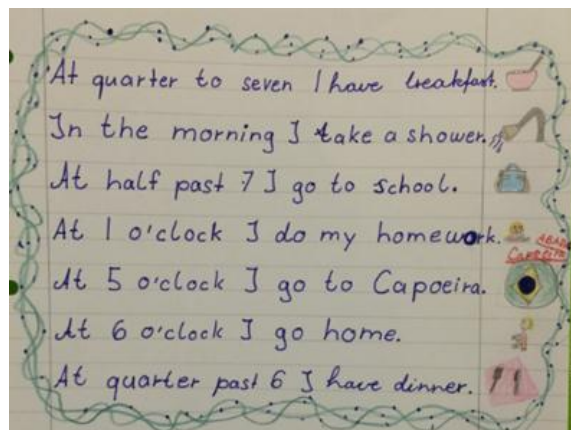 At quarter to seven I have breakfast.
In the morning I take a shower.
At half past 7 I go to school.
At 1 o'clock I do my homework.
ABADÁ
Capoeira
At 5 o'clock I go to Capoeira.
At 6 o'clock I go home.
At quarter past 6 I have dinner.